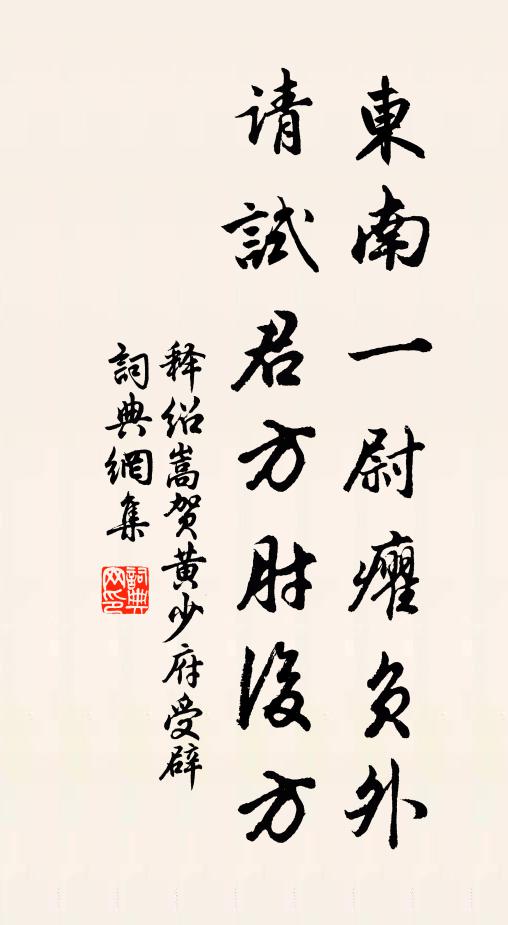 東南一尉癯負外
请試君方肘後方
释绍嵩贺黄少府受辟
詞典網集
詞典网印